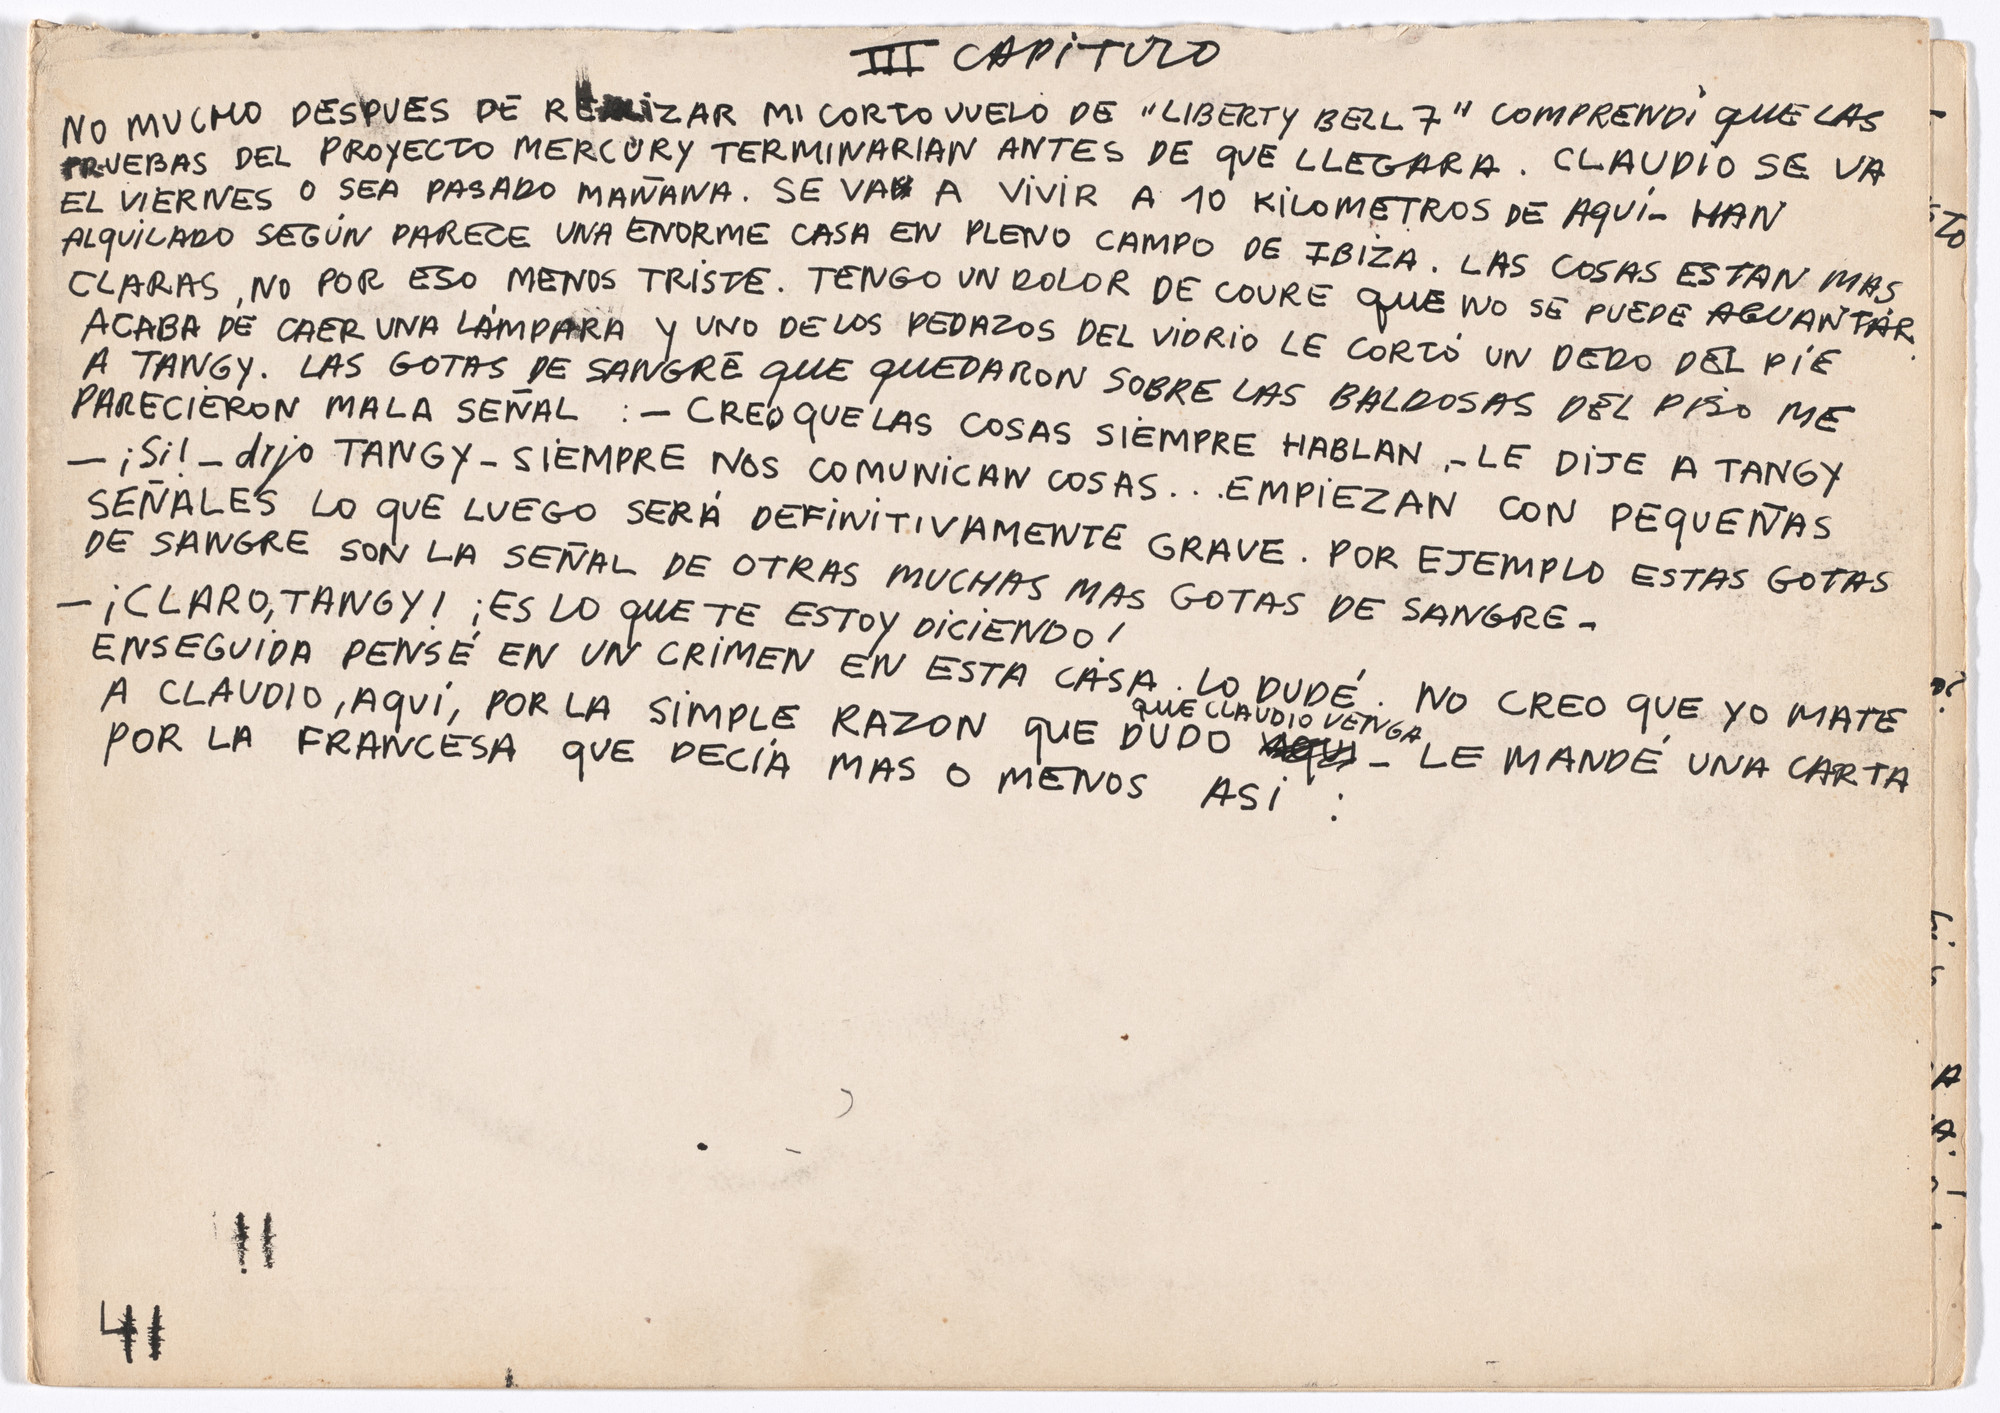 III CAPiTULO
NO MUCHO DESPUES DE REALiZAR MI CORTO VUELO DE "LIBERTY BELL 7" COMPRENDÍ QUE LAS
PRUEBAS DEL PROYECTO MERCURY TERMINARIAN ANTES DE QUE LLEGARA. CLAUDIO SE VA
EL VIERNES O SEA PASADO MAÑANA. SE VA A ViViR A 10 KiLOMETROS DE AQUÍ- HAN
ALQUiLADO SEGÚN PARECE UNA ENORME CASA EN PLENO CAMPO DE IBIZA. LAS COSAS ESTAN MAS
CLARAS, NO POR ESO MENOS TRISTE. TENGO UN DOLOR DE COURE QUE NO SE PUEDE AGUANTAR.
ACABA DE CAER UNA LÁMPARA Y UNO DE LOS PEDAZOS DEL VIDRIO LE CORTÓ UN DEDO DEL PIE
A TANGY. LAS GOTAS DE SANGRE QUE QUEDARON SOBRE LAS BALDOSAS DEL PISO ME
PARECIERON MALA SEÑAL :- CREO QUE LAS COSAS SiEMPRE HABLAN,- LE DIJE A TANGY
- ¡Si! - dijo TANGY - SiEMPRE NOS COMUNICAN COSAS... EMPiEZAN CON PEQUEÑAS
SEÑALES LO QUE LUEGO SERÁ DEFiNiTIVAMENTE GRAVE. POR EJEMPLO ESTAS GOTAS
DE SANGRE SON LA SEÑAL DE OTRAS MUCHAS MAS GOTAS DE SANGRE -
- ¡CLARO, TANGY! ¡ES LO QUE TE ESTOY DiCiENDO!
ENSEGUiDA PENSÉ EN UN CRiMEN EN ESTA CASA. LO DUDÉ. NO CREO QUE YO MATE
A CLAUDIO, AQUÍ, POR LA SiMPLE RAZON QUE DUDO QUE CLAUDIO VENGA - LE MANDÉ UNA CARTA
POR LA FRANCESA QUE DECÍA MAS O MENOS ASÍ :